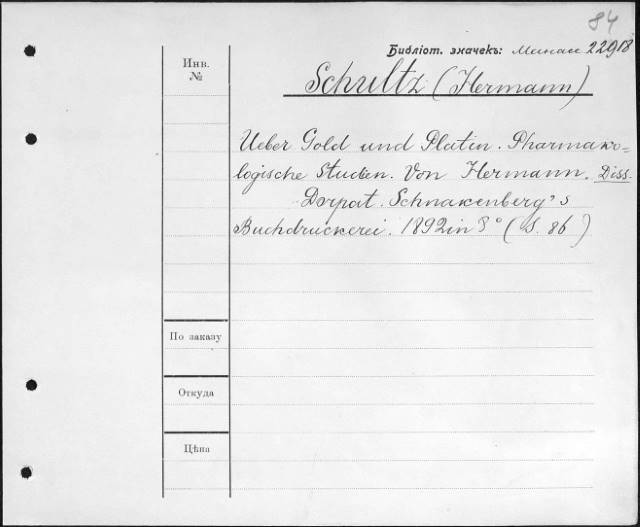 84
Библіот. значекъ: Манасс 22918
Инв.
№
Schultz (Hermann)
Ueber Gold und Platin. Pharmako=
logische Studien. Von Hermann. Diss.
Dorpat. Schnakenberg's
Buchdruckerei. 1892 in 8° (S. 86)
По заказу
Откуда
Цѣна